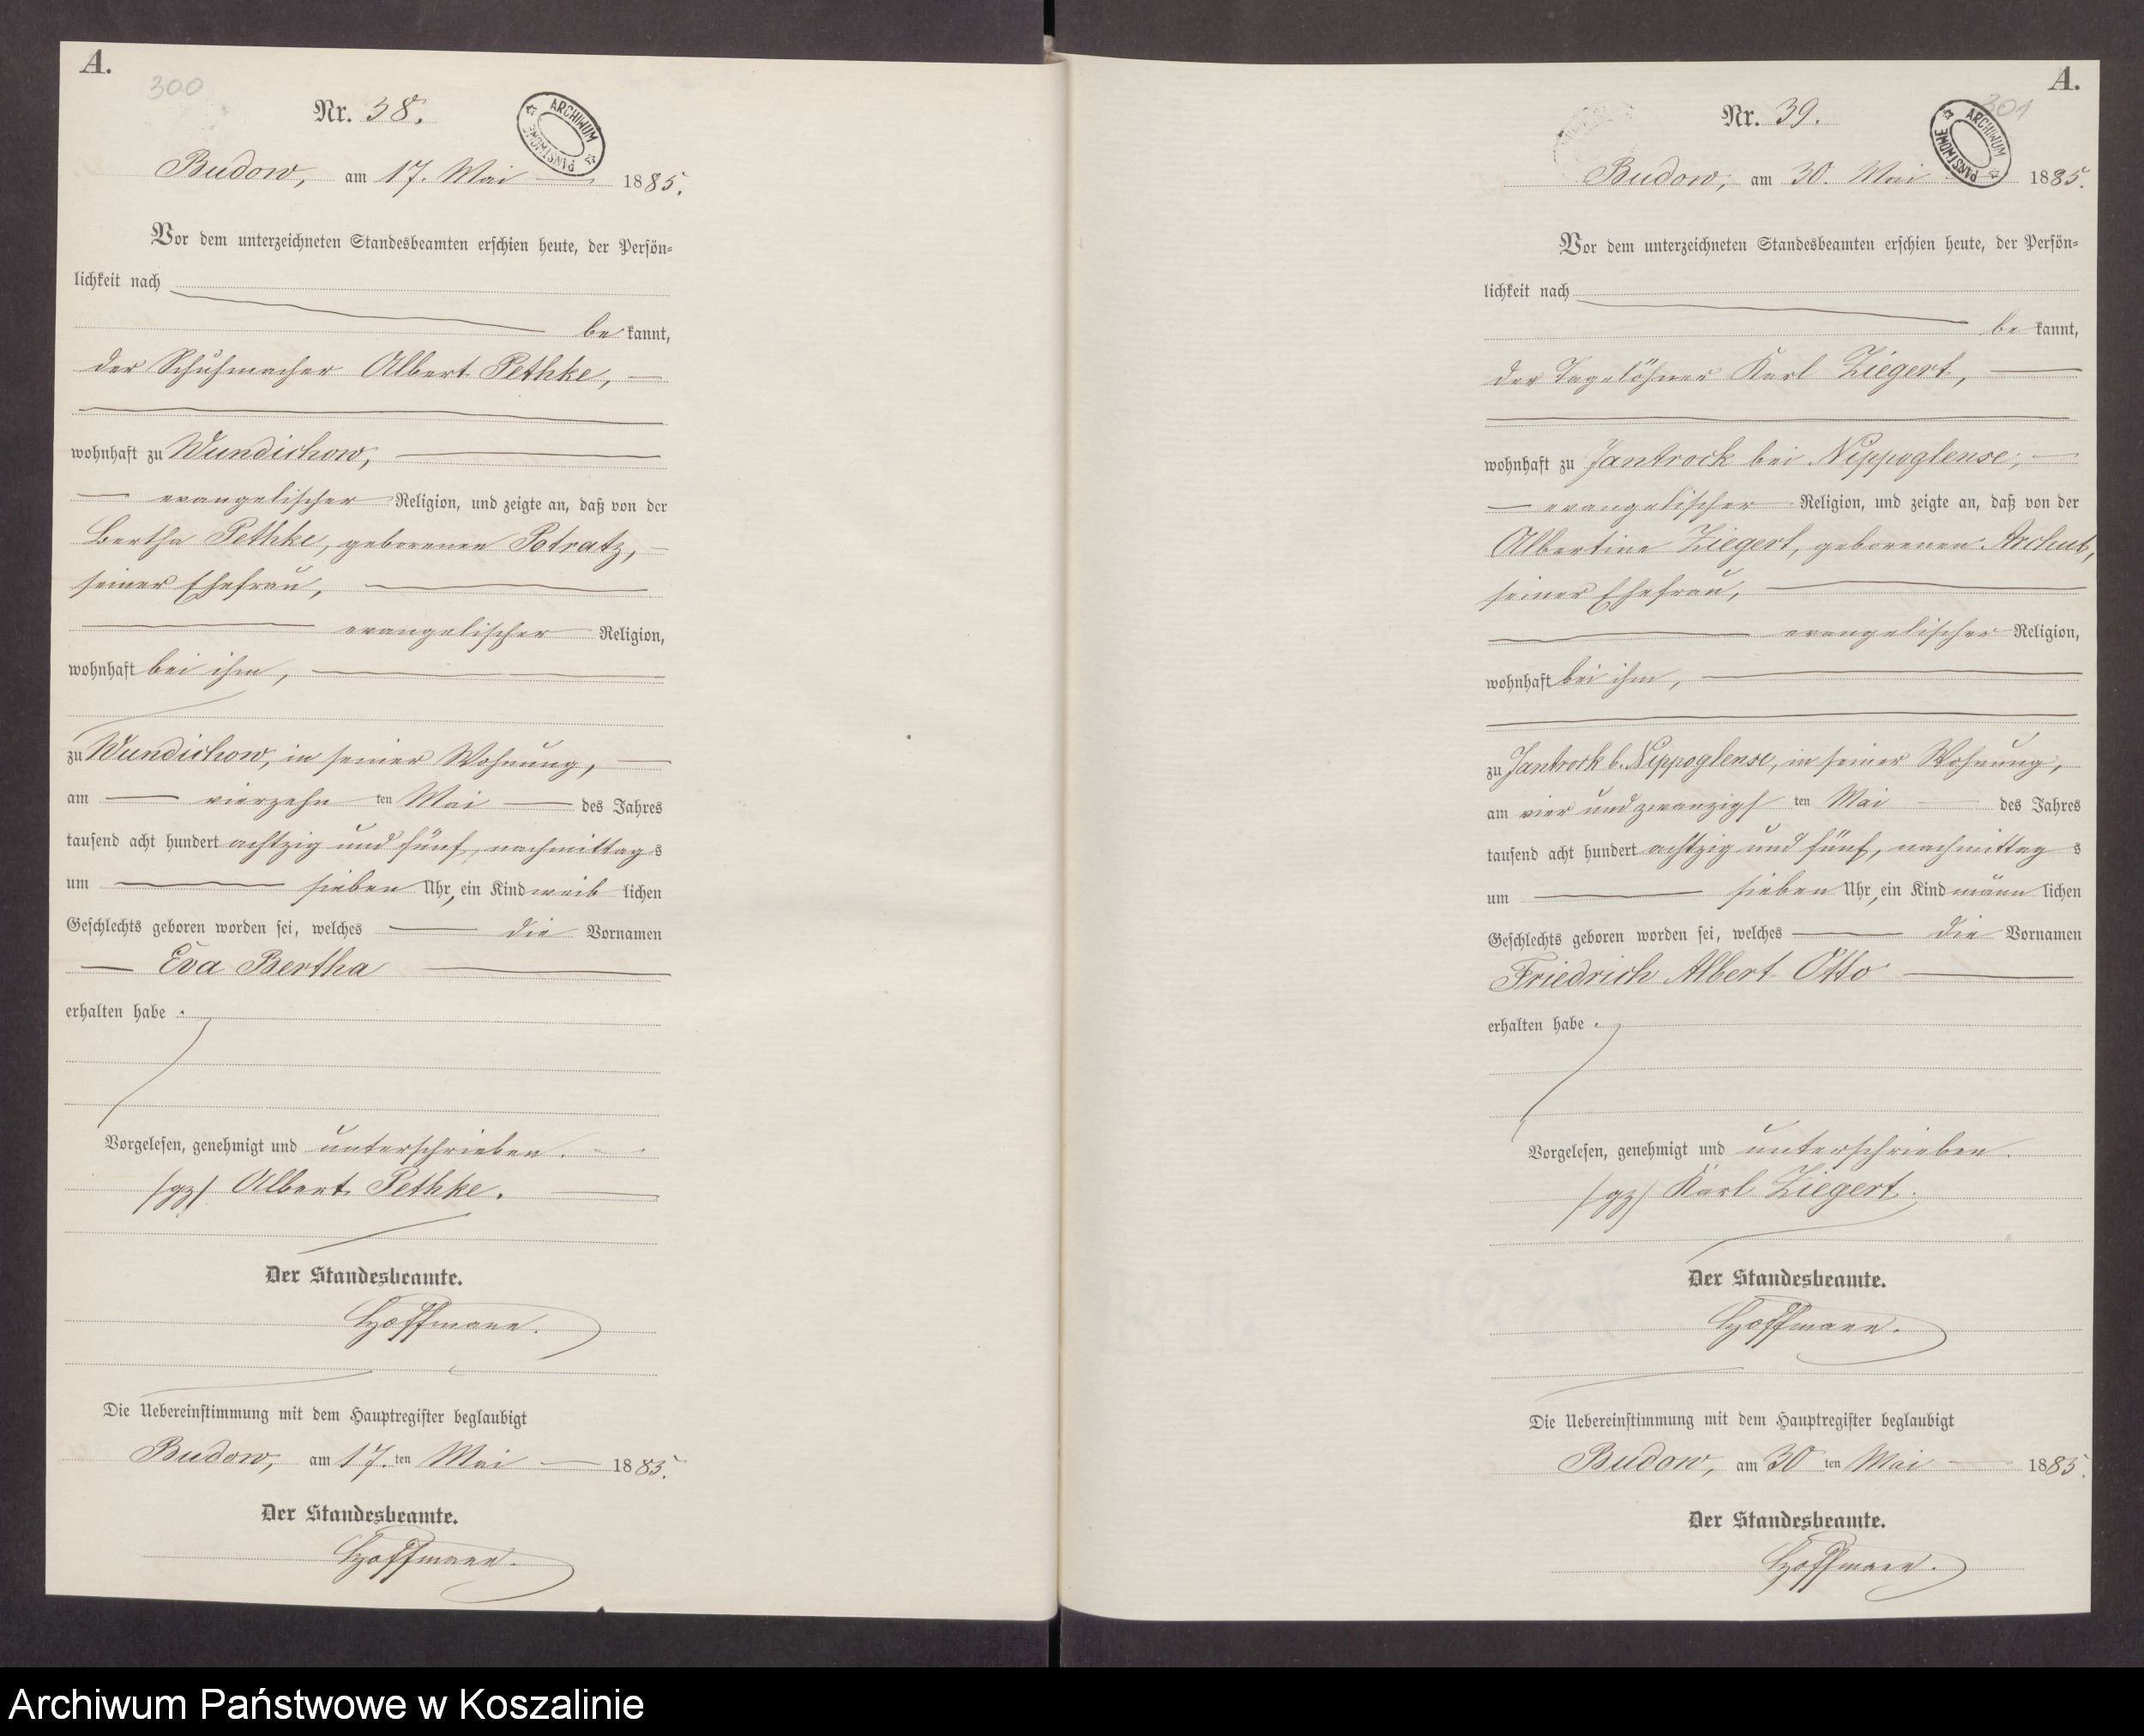 A.
300
Nr. 38.
ARCHIWUM PAŃSTWOWE
Budow, am 17. Mai 1885.
Vor dem unterzeichneten Standesbeamten erschien heute, der Persön-
lichkeit nach
be kannt,
der Schuhmacher Albert Pethke,
wohnhaft zu Wundichow,
evangelischer Religion, und zeigte an, daß von der
Bertha Pethke, geborenen Potratz,
seiner Ehefrau,
evangelischer Religion,
wohnhaft bei ihm,
zu Wundichow, in seiner Wohnung,
am vierzehn ten Mai des Jahres
tausend acht hundert achtzig und fünf, nachmittag s
um sieben Uhr, ein Kind weib lichen
Geschlechts geboren worden sei, welches die Vornamen
Eva Bertha
erhalten habe.
Vorgelesen, genehmigt und unterschrieben.
/gz/ Albert Pethke.
Der Standesbeamte.
Hoffmann.
Die Uebereinstimmung mit dem Hauptregister beglaubigt
Budow, am 17. ten Mai 1885.
Der Standesbeamte.
Hoffmann.
A.
301
Nr. 39.
ARCHIWUM PAŃSTWOWE
Budow, am 30. Mai 1885.
Vor dem unterzeichneten Standesbeamten erschien heute, der Persön-
lichkeit nach
be kannt,
der Tagelöhner Karl Ziegert,
wohnhaft zu Jantrock bei Nippoglense,
evangelischer Religion, und zeigte an, daß von der
Albertine Ziegert, geborenen
seiner Ehefrau,
evangelischer Religion,
wohnhaft bei ihm,
zu Jantrock b. Nippoglense, in seiner Wohnung,
am vier und zwanzigs ten Mai des Jahres
tausend acht hundert achtzig und fünf, nachmittag s
um sieben Uhr, ein Kind männ lichen
Geschlechts geboren worden sei, welches die Vornamen
Friedrich Albert Otto
erhalten habe.
Vorgelesen, genehmigt und unterschrieben.
/gz/ Karl Ziegert.
Der Standesbeamte.
Hoffmann.
Die Uebereinstimmung mit dem Hauptregister beglaubigt
Budow, am 30 ten Mai 1885.
Der Standesbeamte.
Hoffmann.
Archiwum Państwowe w Koszalinie